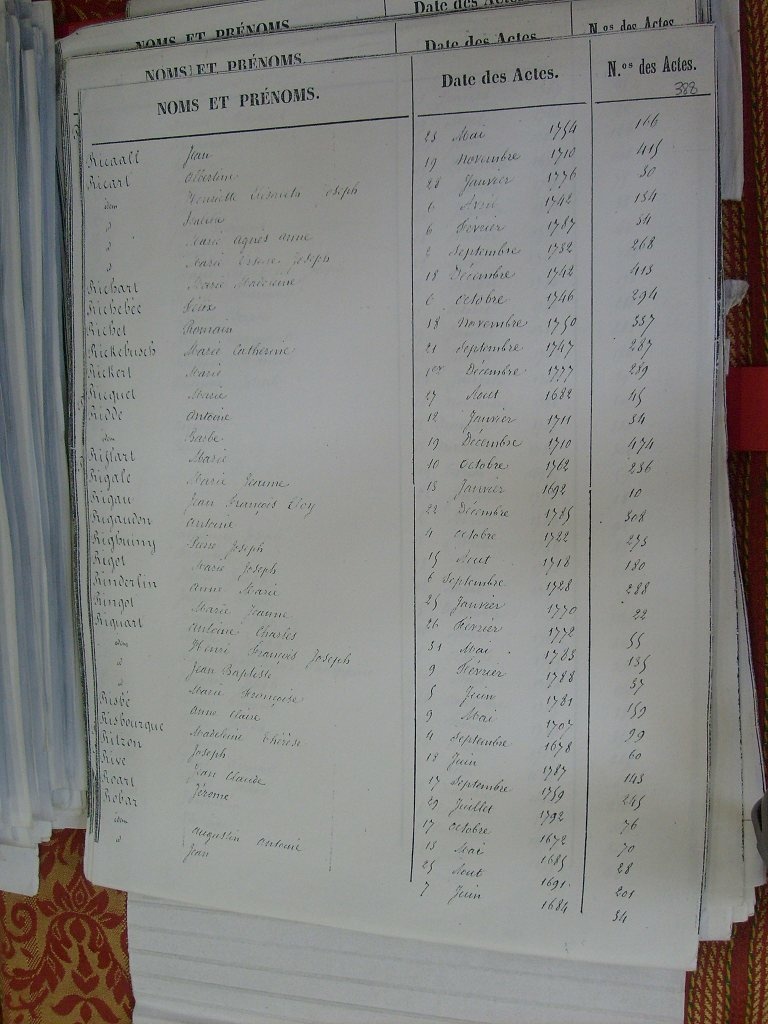 NOMS ET PRÉNOMS. Date des Actes. N.os des Actes.
NOMS ET PRÉNOMS. Date des Actes.
NOMS ET PRÉNOMS. Date des Actes. N.os des Actes.
388
Ricaall Jean 23 Mai 1754 166
Ricart Albertine 19 Novembre 1710 415
idem Henriette Elisabeth Joseph 28 Janvier 1776 30
d Julien 6 Avril 1742 134
d Marie Agnès Anne 6 Février 1787 34
d Marie Ursule Joseph 2 Septembre 1732 268
Richart Marie Madeleine 18 Décembre 1742 413
Richebée Félix 6 Octobre 1746 294
Richet Romain 18 Novembre 1750 337
Rickebusch Marie Catherine 21 Septembre 1747 287
Rickert Marie 1er Décembre 1777 289
Ricquet Marie 27 Aout 1682 45
Ridde Antoine 12 Janvier 1711 34
idem Barbe 19 Décembre 1710 474
Rifflart Marie 10 Octobre 1762 236
Rigale Marie Jeanne 13 Janvier 1692 10
Rigau Jean François Eloy 22 Décembre 1785 308
Rigauden Antoine 4 Octobre 1722 273
Pierre Joseph 15 Aout 1718 180
Rigot Marie Joseph 6 Septembre 1728 288
Rinderlin Anne Marie 25 Janvier 1770 22
Ringot Marie Jeanne 26 Février 1772 55
Riquart Antoine Charles 31 Mai 1783 135
idem Henri François Joseph 9 Février 1788 37
d Jean Baptiste 5 Juin 1781 159
d Marie Françoise 9 Mai 1707 99
Risbé Anne Claire 4 Septembre 1678 60
Risbourgue Madeleine Thérèse 12 Juin 1787 143
Ritzon Joseph 17 Septembre 1759 245
Rive Jean Claude 29 Juillet 1792 76
Roart Jérome 17 Octobre 1672 70
Robar 13 Mai 1685 28
idem Augustin Antoine 25 Aout 1691 201
d Jean 7 Juin 1684 34